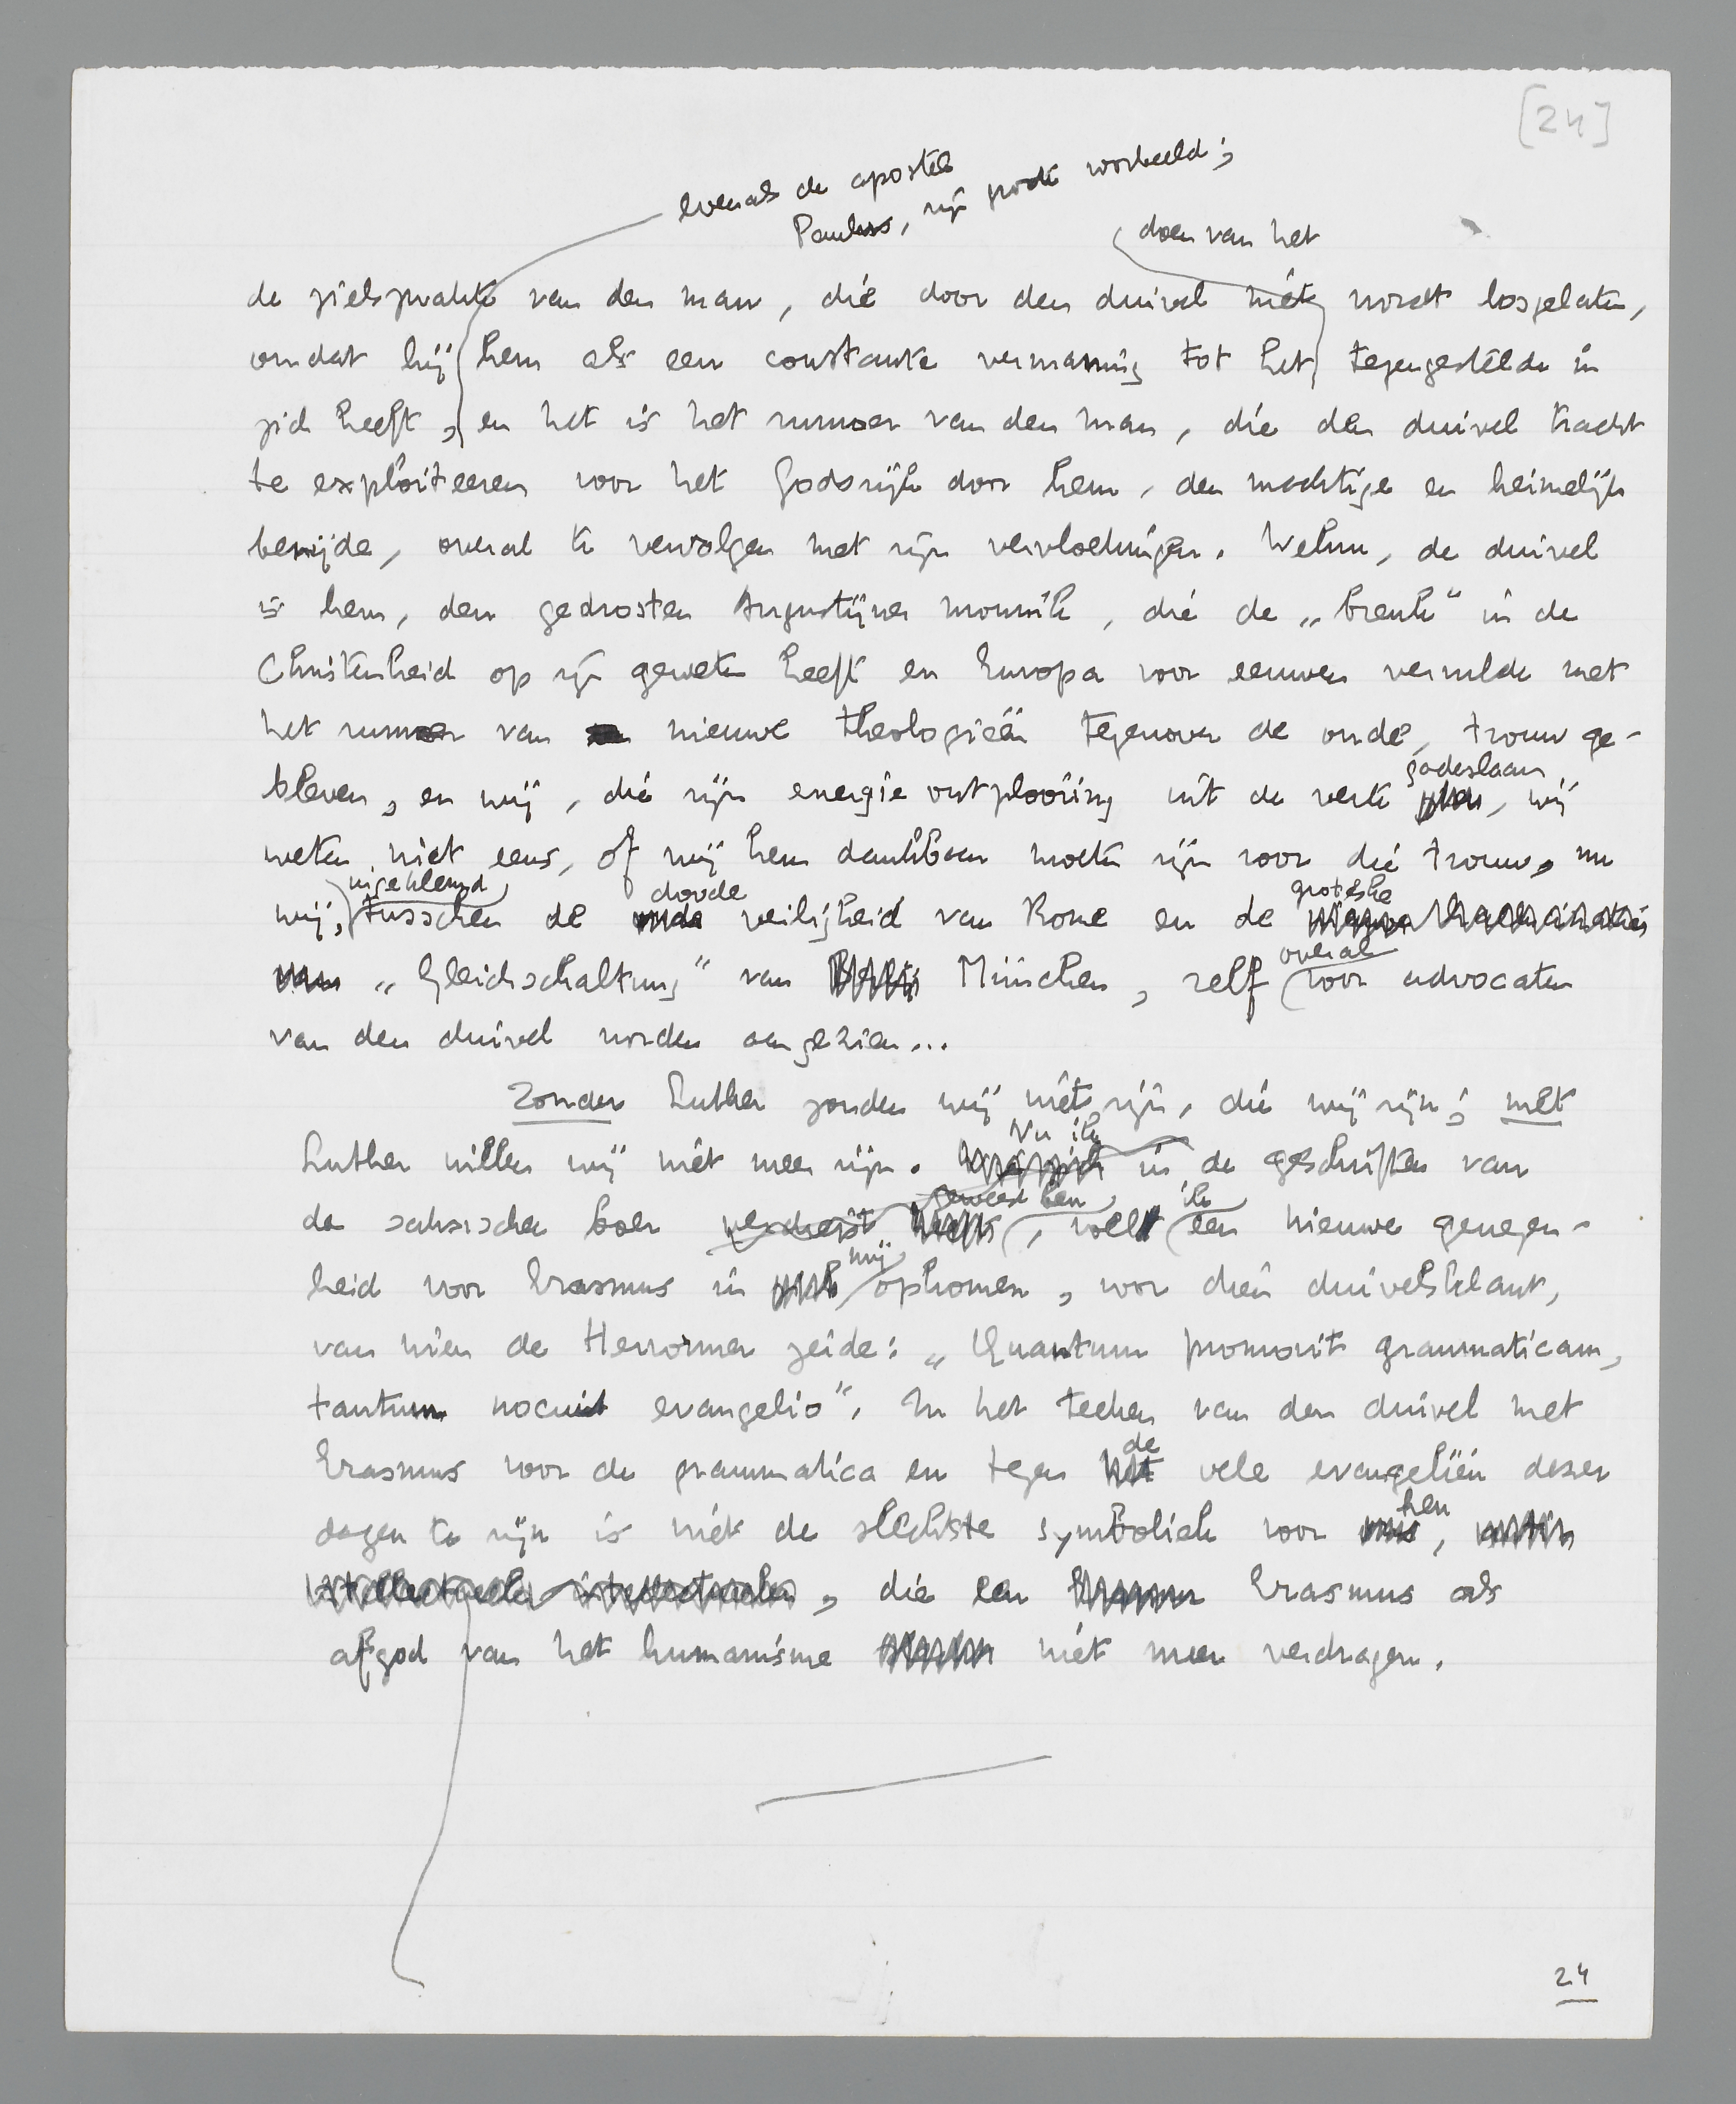 [24]
evenals de apostel
Paulus, zijn groote voorbeeld;
doen van het
de zielsziekte van den man, die door den duivel niet wordt losgelaten,
omdat hij hem als een constante vermaning tot het tegengestelde in
zich heeft, en het is het rumoer van den man, die den duivel tracht
te exploiteeren voor het Godsrijk door hem, den machtige en heimelijk
benijde, overal te vervolgen met zijn vervloekingen. Welnu, de duivel
is hem, den gedrosten Augustijner monnik, die de „breuk" in de
Christenheid op zijn geweten heeft en Europa voor eeuwen vervulde met
het rumoer van nieuwe theologieën tegenover de oude, trouw ge-
bleven, en wij, die zijn energie-ontplooiing uit de verte
gadeslaan, wij
weten niet eens, of wij hem dankbaar moeten zijn voor die trouw, nu
ingeklemd doode groteske
wij, tusschen de veiligheid van Rome en de
overal
„Gleichschaltung" van München, zelf voor advocaten
van den duivel worden aangezien...
Zonder Luther zouden wij niet zijn, die wij zijn; met
Nu ik
Luther willen wij niet meer zijn. in de geschriften van
geweest ben ik
de saksische boer verdiept, voel een nieuwe genegen-
mij
heid voor Erasmus in opkomen, voor dien duivelsklant,
van wien de Hervormer zeide: „Quantum promovit grammaticam,
tantum nocuit evangelio". In het teeken van den duivel met
de
Erasmus voor de grammatica en tegen vele evangeliën dezer
hen
dagen te zijn is niet de slechtste symboliek voor,
intellectueelen, die een Erasmus als
afgod van het humanisme niet meer verdragen.
24